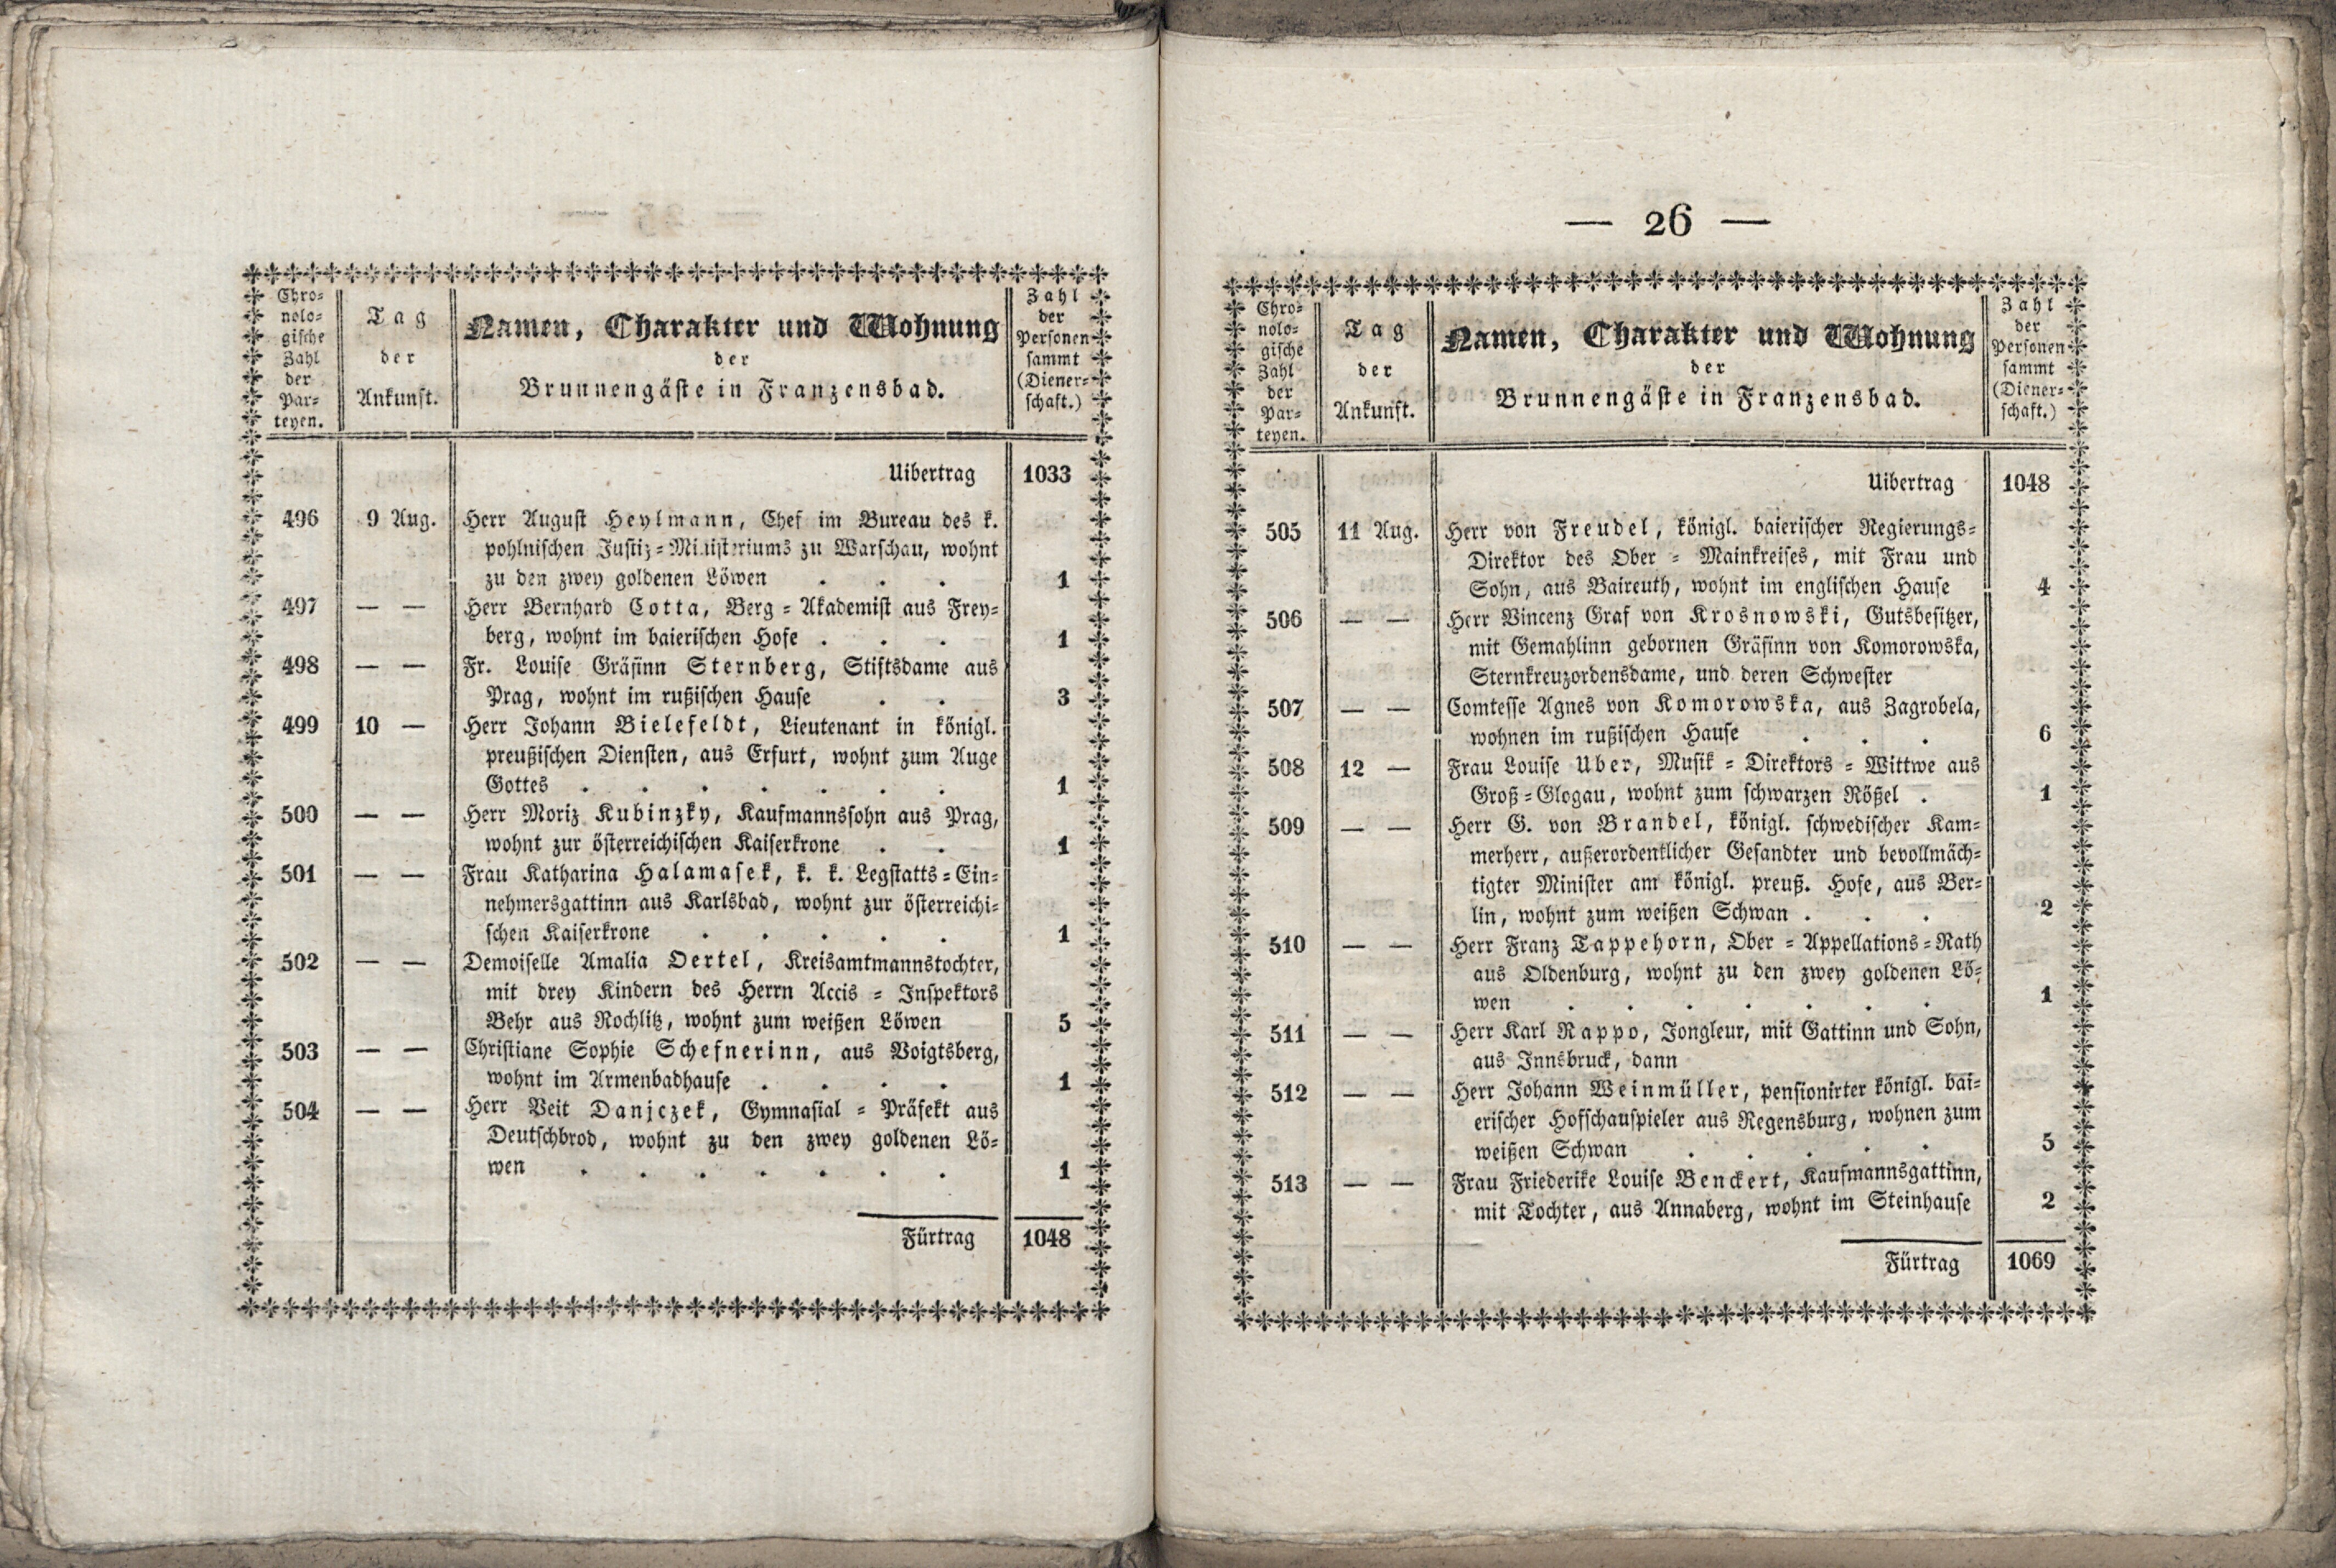 Chro-
nolo-
gische
Zahl
der
Par-
teyen.
Tag
der
Ankunft.
Namen, Charakter und Wohnung
der
Brunnengäste in Franzensbad.
Zahl
der
Personen
sammt
(Diener-
schaft.)
Uibertrag 1033
496 9 Aug. Herr August Heylmann, Chef im Bureau des k.
pohlnischen Justiz-Ministeriums zu Warschau, wohnt
zu den zwey goldenen Löwen . . . 1
497 — — Herr Bernhard Cotta, Berg-Akademist aus Frey-
berg, wohnt im baierischen Hofe . . . 1
498 — — Fr. Louise Gräfinn Sternberg, Stiftsdame aus
Prag, wohnt im rußischen Hause . . 3
499 10 — Herr Johann Bielefeldt, Lieutenant in königl.
preußischen Diensten, aus Erfurt, wohnt zum Auge
Gottes . . . . . . . 1
500 — — Herr Moriz Kubinzky, Kaufmannssohn aus Prag,
wohnt zur österreichischen Kaiserkrone . . 1
501 — — Frau Katharina Halamasek, k. k. Legstatts-Ein-
nehmersgattinn aus Karlsbad, wohnt zur österreichi-
schen Kaiserkrone . . . . . 1
502 — — Demoiselle Amalia Oertel, Kreisamtmannstochter,
mit drey Kindern des Herrn Accis-Inspektors
Behr aus Rochlitz, wohnt zum weißen Löwen 5
503 — — Christiane Sophie Schefnerinn, aus Voigtsberg,
wohnt im Armenbadhause . . . . 1
504 — — Herr Veit Danjczek, Gymnasial-Präfekt aus
Deutschbrod, wohnt zu den zwey goldenen Lö-
wen . . . . . . . 1
Fürtrag 1048
— 26 —
Chro-
nolo-
gische
Zahl
der
Par-
teyen.
Tag
der
Ankunft.
Namen, Charakter und Wohnung
der
Brunnengäste in Franzensbad.
Zahl
der
Personen
sammt
(Diener-
schaft.)
Uibertrag 1048
505 11 Aug. Herr von Freudel, königl. baierischer Regierungs-
Direktor des Ober-Mainkreises, mit Frau und
Sohn, aus Baireuth, wohnt im englischen Hause 4
506 — — Herr Vincenz Graf von Krosnowski, Gutsbesitzer,
mit Gemahlinn gebornen Gräfinn von Komorowska,
Sternkreuzordensdame, und deren Schwester
507 — — Comtesse Agnes von Komorowska, aus Zagrobela,
wohnen im rußischen Hause . . . 6
508 12 — Frau Louise Uber, Musik-Direktors-Wittwe aus
Groß-Glogau, wohnt zum schwarzen Rößel . 1
509 — — Herr G. von Brandel, königl. schwedischer Kam-
merherr, außerordentlicher Gesandter und bevollmäch-
tigter Minister am königl. preuß. Hofe, aus Ber-
lin, wohnt zum weißen Schwan . . . 2
510 — — Herr Franz Tappehorn, Ober-Appellations-Rath
aus Oldenburg, wohnt zu den zwey goldenen Lö-
wen . . . . . . . 1
511 — — Herr Karl Rappo, Jongleur, mit Gattinn und Sohn,
aus Innsbruck, dann
512 — — Herr Johann Weinmüller, pensionirter königl. bai-
erischer Hofschauspieler aus Regensburg, wohnen zum
weißen Schwan . . . . . 5
513 — — Frau Friederike Louise Benckert, Kaufmannsgattinn,
mit Tochter, aus Annaberg, wohnt im Steinhause 2
Fürtrag 1069